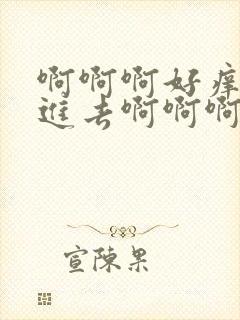 啊啊啊好痒
进去啊啊啊
宣陈果